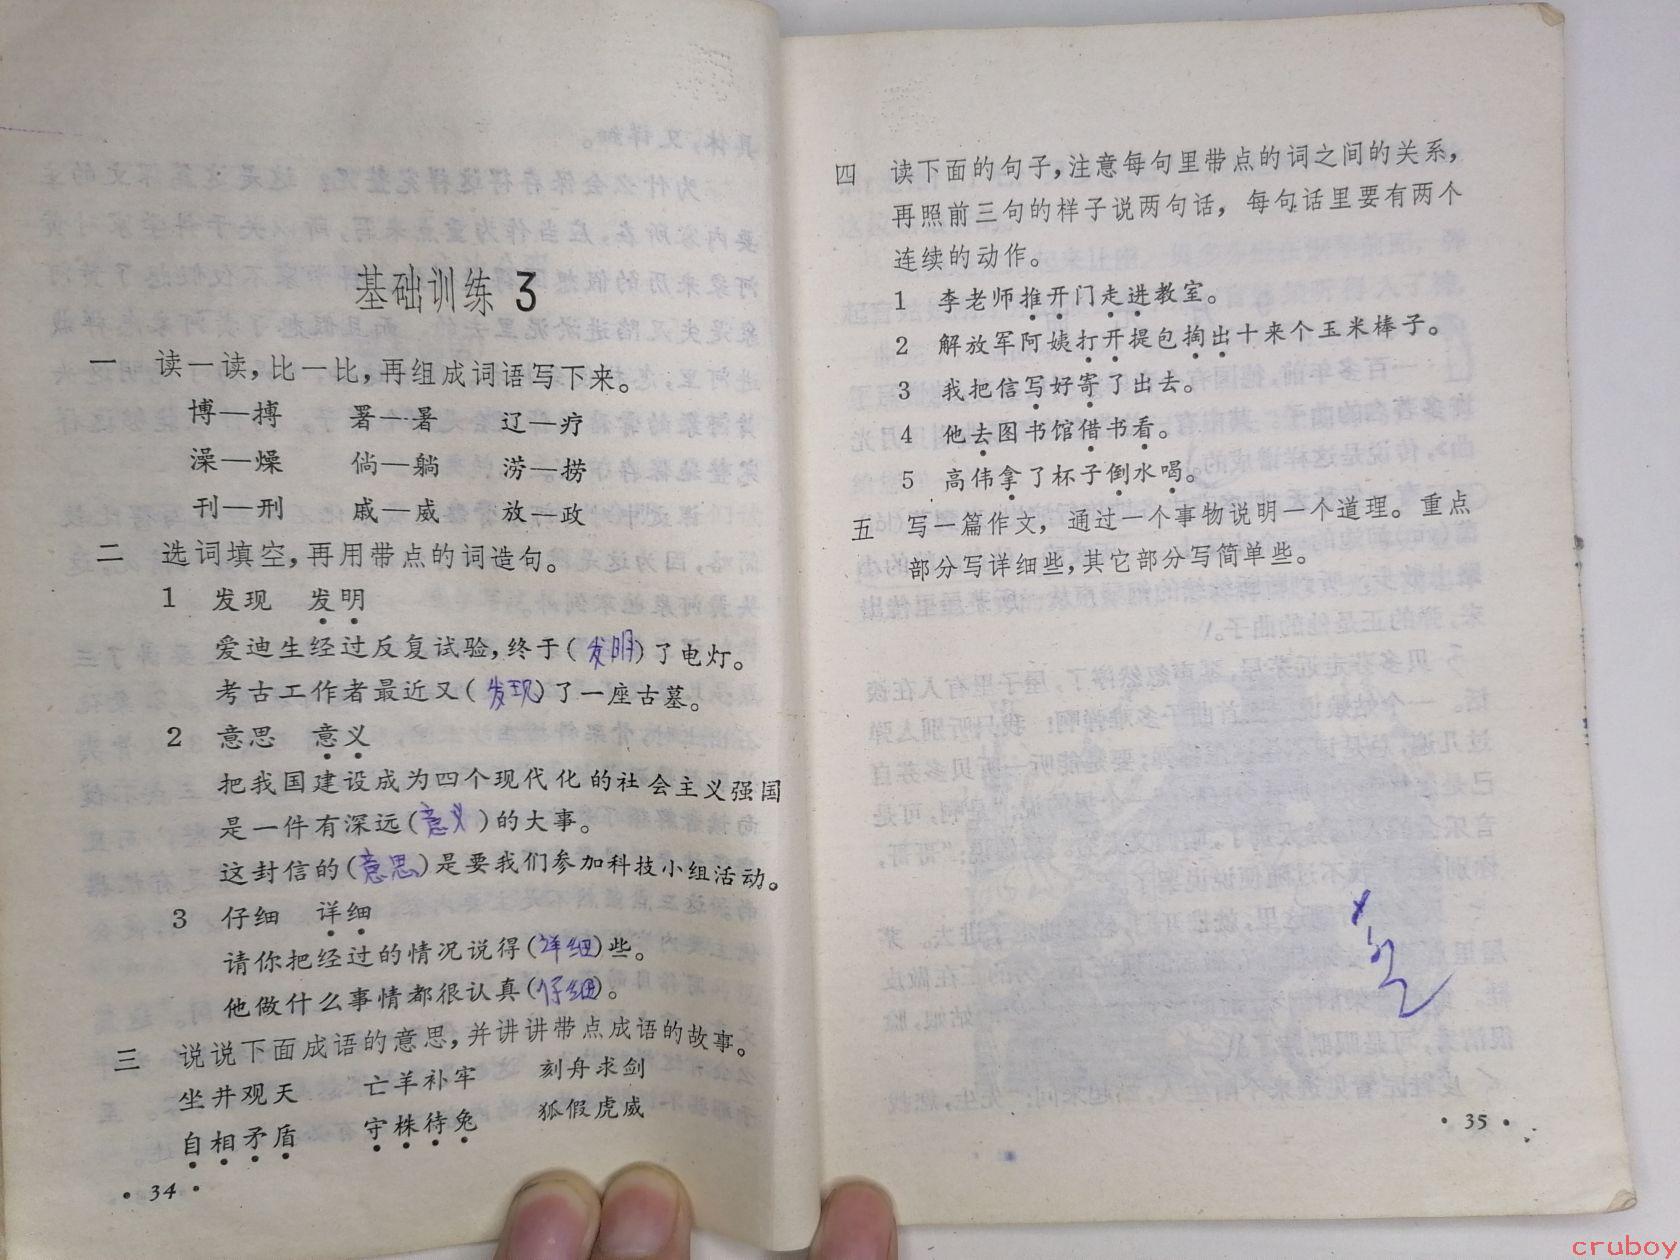 基础训练 3
一 读一读，比一比，再组成词语写下来。
博—搏 署—暑 辽—疗
澡—燥 倘—躺 涝—捞
刊—刑 戚—威 放—政
二 选词填空，再用带点的词造句。
1 发现 发明
爱迪生经过反复试验，终于(发明)了电灯。
考古工作者最近又(发现)了一座古墓。
2 意思 意义
把我国建设成为四个现代化的社会主义强国
是一件有深远(意义)的大事。
这封信的(意思)是要我们参加科技小组活动。
3 仔细 详细
请你把经过的情况说得(详细)些。
他做什么事情都很认真(仔细)。
三 说说下面成语的意思，并讲讲带点成语的故事。
坐井观天 亡羊补牢 刻舟求剑
自相矛盾 守株待兔 狐假虎威
· 34 ·
四 读下面的句子，注意每句里带点的词之间的关系，
再照前三句的样子说两句话，每句话里要有两个
连续的动作。
1 李老师推开门走进教室。
2 解放军阿姨打开提包掏出十来个玉米棒子。
3 我把信写好寄了出去。
4 他去图书馆借书看。
5 高伟拿了杯子倒水喝。
五 写一篇作文，通过一个事物说明一个道理。重点
部分写详细些，其它部分写简单些。
· 35 ·
cruboy